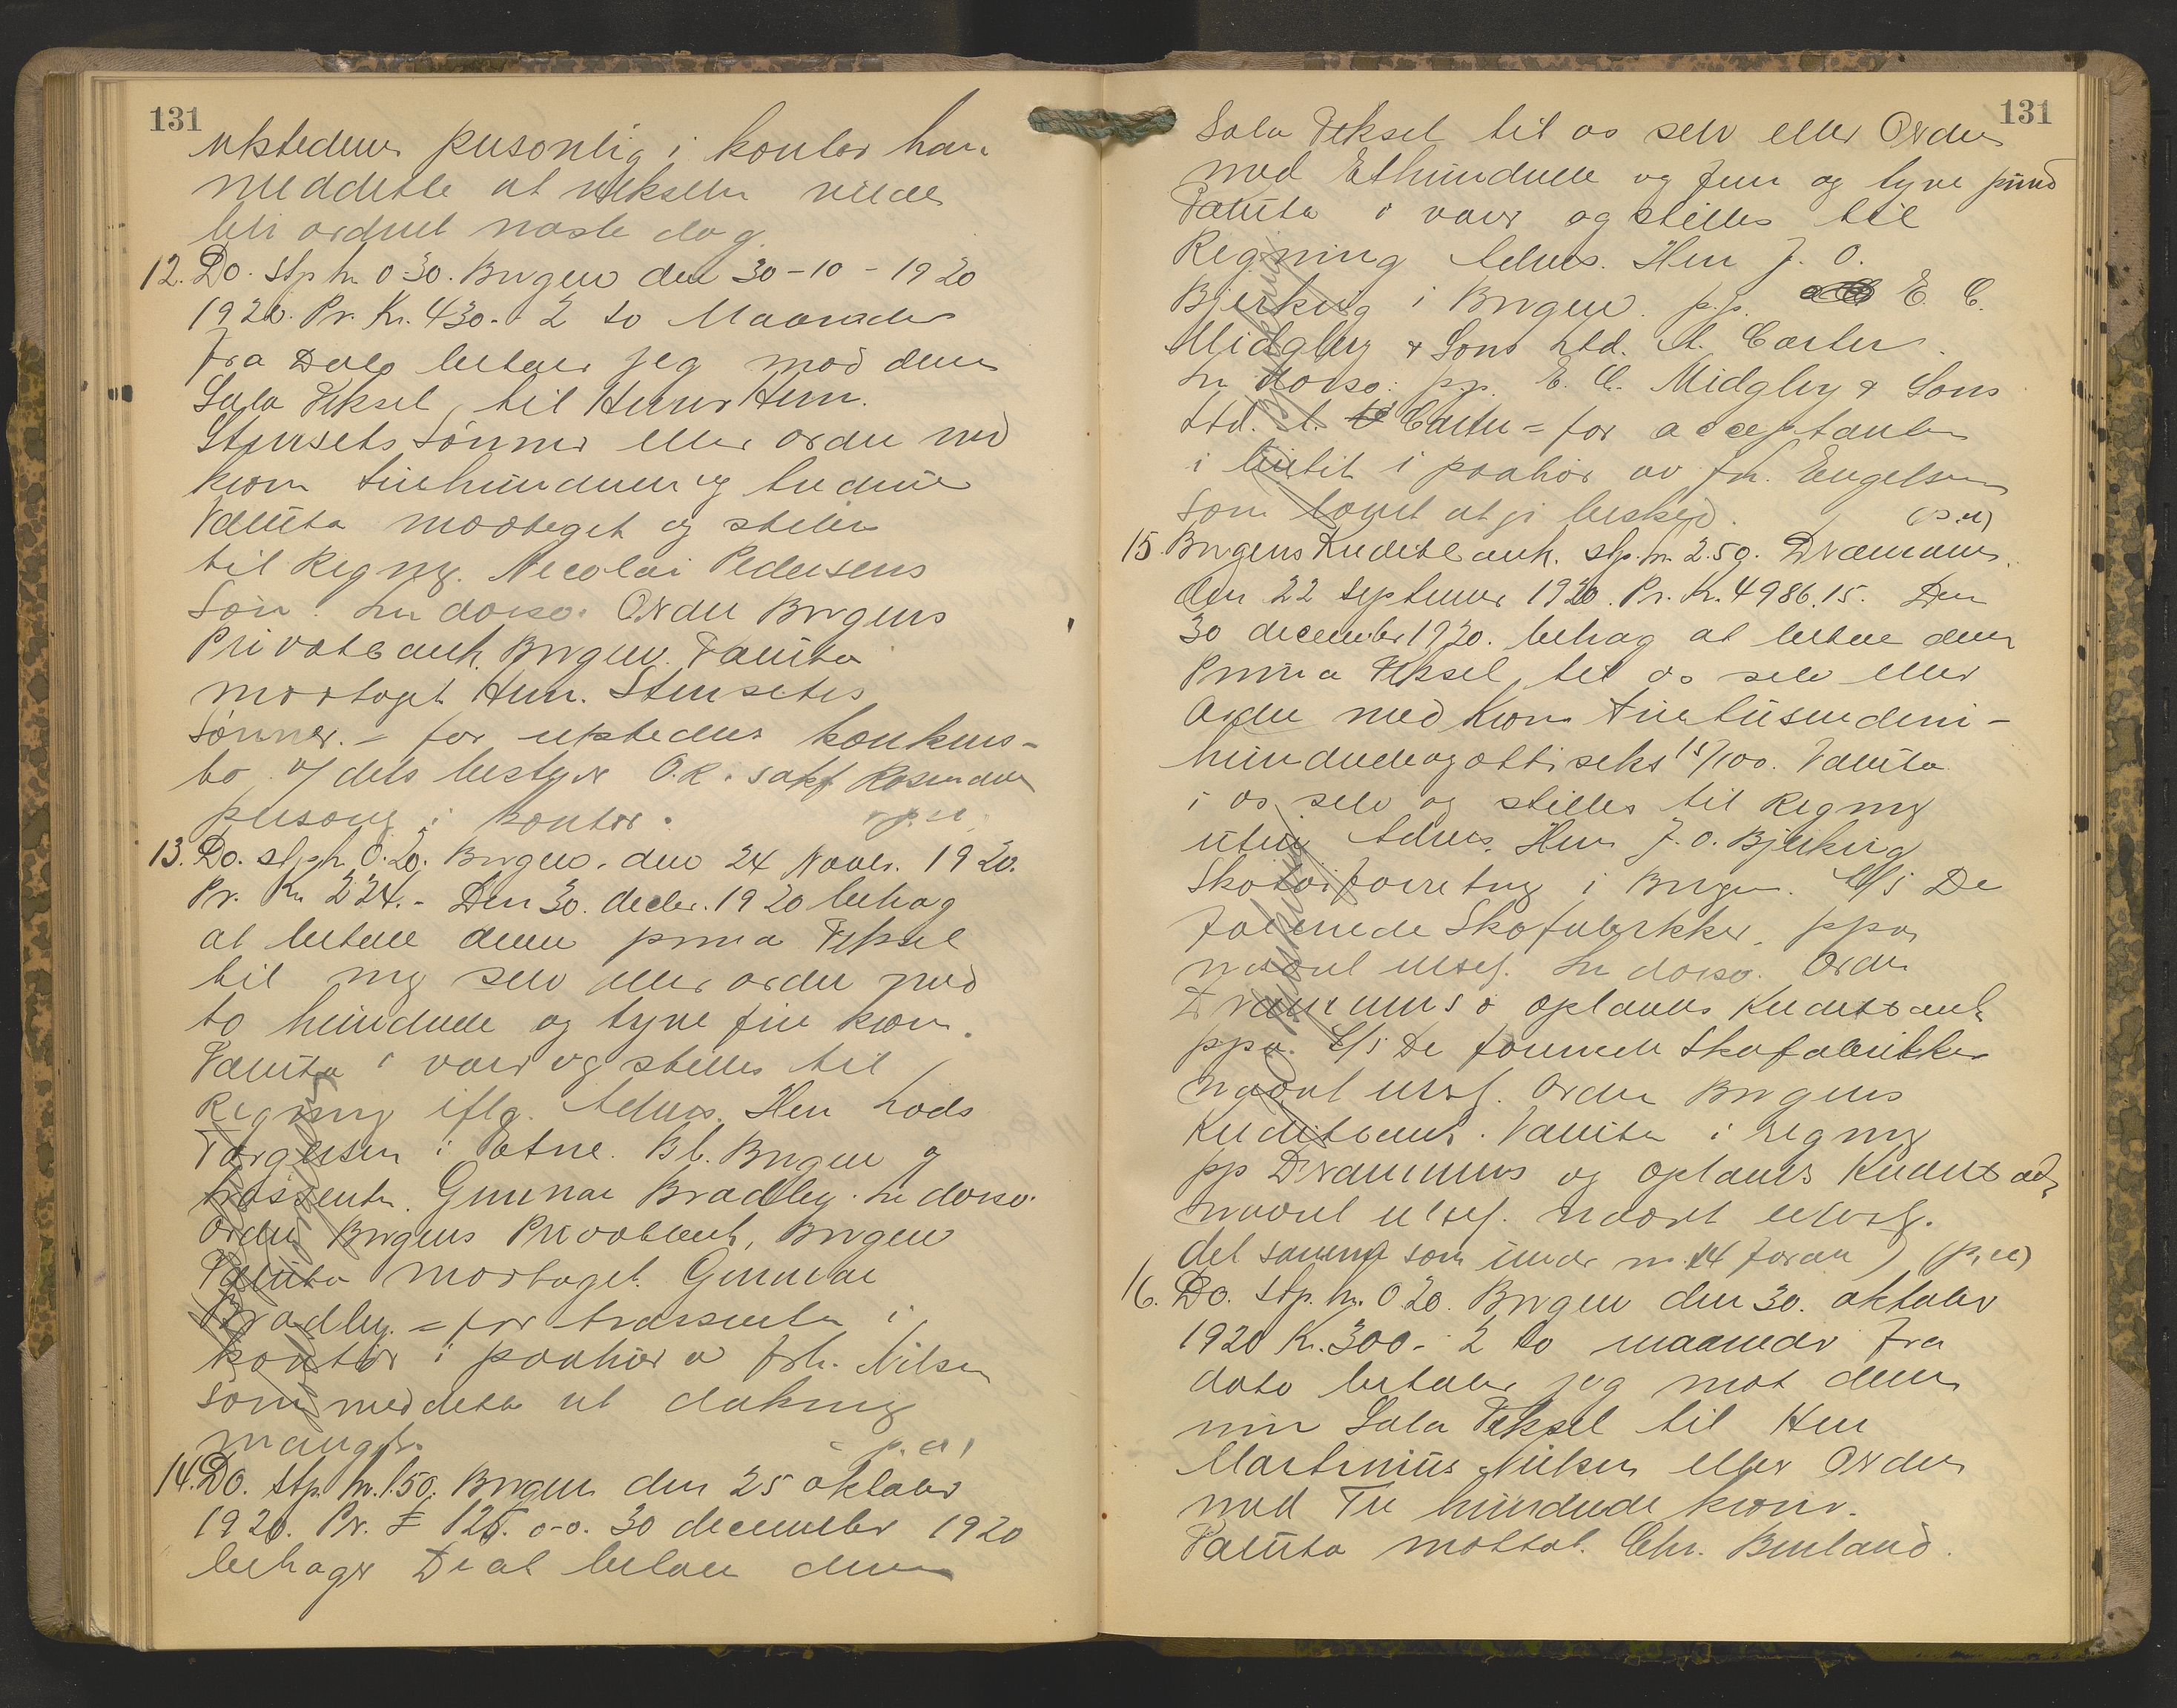 131
utstederen personlig i kontor han
meddelte at vekselen vilde
bli ordnet næste dag.
12. Do. stp. kr. 0.30. Bergen den 30-10-1920
1920. Pr. Kr. 430.- 2 to Maaneder
fra Dato betaler jeg mod denne
Sola Veksel til Herrer Herm.
Stensets Sønner eller ordre med
kroner firehundrede og tredive
Valuta modtaget og stilles
til Regning. Nicolai Pedersens
Søn. In dorso. Ordre Bergens
Privatbank, Bergen. Valuta
modtaget Herm. Stensets
Sønner. = for utsteders konkurs-
bo v/ dets bestyrer O.R. sakf.
personlig i kontor. p.u.
13. Do. stp. kr. 0.20. Bergen. den 24 Novbr. 1920.
Pr. Kr. 224.- Den 30. decbr. 1920 behag
at betale denne prima Veksel
til mig selv eller ordre med
to hundrede og tyve fire kroner.
Valuta i varer og stilles til
Regning iflg. Advis. Herr Lods
Torgersen i Etne. Bt. Bergen og
trassenten. Gunnar Bradley. In dorso.
Ordre Bergens Privatbank, Bergen
Valuta modtaget. Gunnar
Bradley. = for trassenten i
kontor i paahør av frk. Nilsen
som meddelte at dækning
mangler. p.u.
14. Do. stp. kr. 1.50. Bergen den 25 oktober
1920. Pr. £ 125. 0-0. 30 december 1920
behager De at betale denne
131
Sola Veksel til os selv eller Ordre
med Ethundrede og fem og tyve pund
Valuta i varer og stilles til
Regning Advis. Herr J. O.
Bjerkvig i Bergen. p.p. E. C.
Midgley & Sons Ltd. A. Carter.
In dorso: pp. E. C. Midgley & Sons
Ltd. A. Carter = for acceptanten
i i paahør av frk. Engelsen
som lovet at gi beskjed. (p.u)
15. Bergens Kreditbank. stp. kr. 2.50. Drammen.
den 22 September 1920. Pr. Kr. 4986.15. Den
30 december 1920. behag at betale denne
Prima Veksel til os selv eller
Ordre med Kroner firetusendeni-
hundredeogottiseks 15/100. Valuta
i os selv og stilles til Regning
uten Advis. Herr J. O. Bjerkvig
Skotøiforretning i Bergen. A/S De
forenede Skofabrikker. ppa
In dorso. Ordre
Drammens & oplands Kreditbank
ppa. A/S De forenede Skofabrikker
Ordre Bergens
Kreditbank. Valuta i regning
pp Drammens og oplands Kreditbank
det samme som under nr. 14 foran) (p.u)
16. Do. Stp. kr. 0.20. Bergen den 30. oktober
1920 Kr. 300.- 2 to maaneder fra
dato betaler jeg mot denne
min Sola Veksel til Herr
Martinius Nilsen eller Ordre
med Tre hundrede kroner.
Valuta mottat. Chr. Benland.